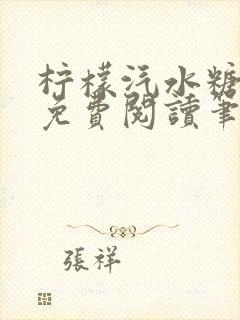 柠檬汽水糖
免費閱讀筆
張祥